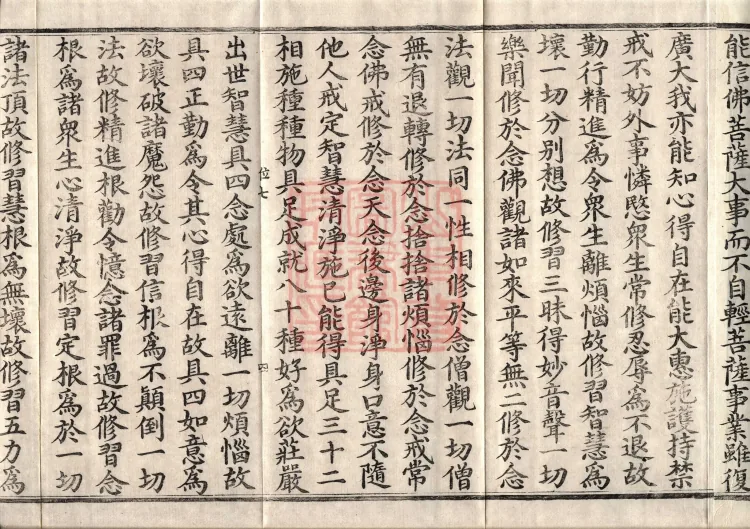 能信佛菩薩大事而不自輕菩薩事業雖復
廣大我亦能知心得自在能大惠施護持禁
戒不妨外事憐愍衆生常修忍辱為不退故
勤行精進為令衆生離煩惱故修習智慧為
壞一切分别想故修習三昧得妙音聲一切
樂聞修於念佛觀諸如來平等無二修於念
法觀一切法同一性相修於念僧觀一切僧
無有退轉修於念捨捨諸煩惱修於念戒常
念佛戒修於念天念後邊身淨身口意不隨
他人戒定智慧清淨施已能得具足三十二
相施種種物具足成就八十種好為欲莊嚴
位七
四
出世智慧具四念處為欲遠離一切煩惱故
具四正勤為令其心得自在故具四如意為
欲壞破諸魔怨故修習信根為不顛倒一切
法故修精進根勸令憶念諸罪過故修習念
根為諸衆生心清淨故修習定根為於一切
諸法頂故修習慧根為無壞故修習五力為